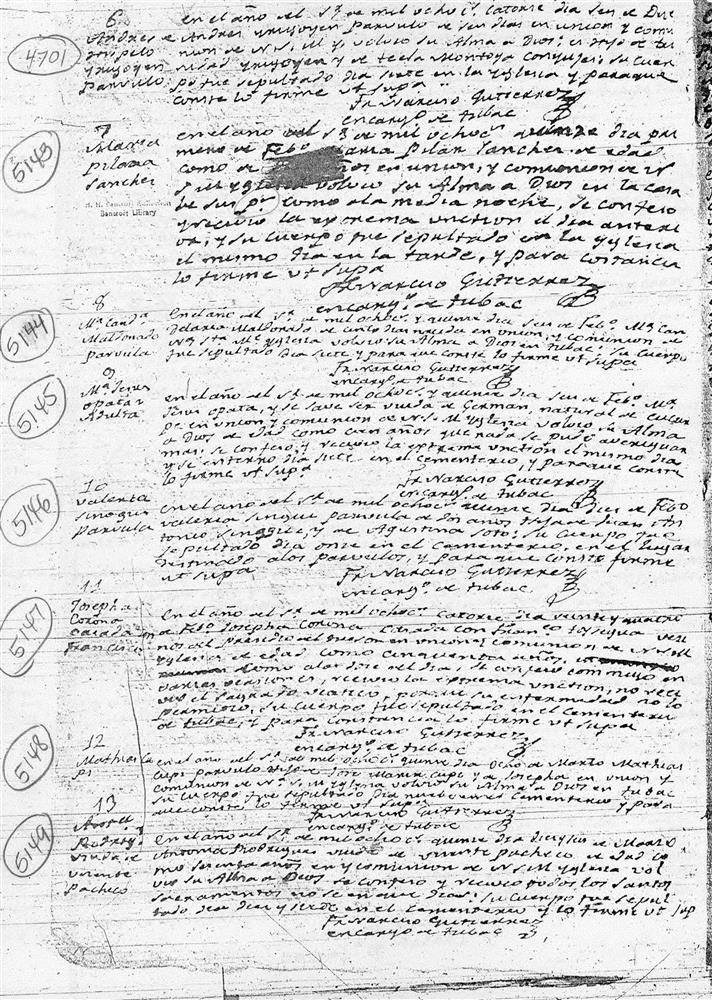 6
4701
Andres
Párvulo
en el año del Sr. de mil ochoc.s catorce dia seis de
de Andres párvulo de seis dias en union y comu
nion de N. S. M. y volvio su Alma a Dios: es hijo de
y de tecla Montoya conyujes: su cuer
po fue sepultado dia siete en la yglesia y paraque
conste lo firme vt supa
Fr. Narciso Gutierrez
encarg.o de tubac
7
5143
Maria
Pilara
Sanchez
H. H. Bancroft Collection
Bancroft Library
en el año del Sr. de mil ochoc.s quinze dia pri
mero de Feb.o Maria Pilar Sanchez de edad
como de años en union, y comunion de N
S. M. yglesia volvio su Alma a Dios en la casa
de sus p.s como a la media noche, se confeso
y recivio la extrema unction el dia anteri
or, y su cuerpo fue sepultado en la yglesia
el mismo dia en la tarde, y para constancia
lo firme vt supa
Fr. Narciso Gutierrez
encarg.o de tubac
8
5144
M.a Cand.a
Maldonado
parvula
En el año del Sr. de mil ochoc.s y quinze dia seis de Feb.o M.a Can
delaria Maldonado de cinco dias nacida en union, y comunion de
N. S. yglesia volvio su Alma a Dios en tubac: su cuerpo
fue sepultado dia siete y para que conste lo firme vt supa
Fr. Narciso Gutierrez
encarg.o de tubac
9
5145
M.a Jesus
opata
Adulta
en el año del Sr. de mil ochoc.s, y quinze dia seis de Feb.o M.a
Jesus opata, y se save ser viuda de German, natural de
en union y comunion de N. S. M. yglesia volvio su Alma
a Dios de edad como cien años que nada se pudo averiguar
mas: se confeso, y recivio la extrema unction el mismo dia
y se enterro dia siete en el cementerio, y paraque conste
lo firme vt supa
Fr. Narciso Gutierrez
encarg.o de tubac
10
5146
Valeria
Sinogui
Parvula
en el año del Sr. de mil ochoc.s quinze dia diez de Feb.o
Valeria parvula de dos años hija de Juan An
tonio y de Agustina Soto: su cuerpo fue
sepultado dia once en el Cementerio, en el lugar
destinado a los parvulos, y para que conste firme
vt supa
Fr. Narciso Gutierrez
encarg.o de tubac
11
5147
Josepha
Corona
casada con
Francis.o
En el año del Sr. de mil ochoc.s catorce dia veinte y quatro
de Feb.o Josepha Corona casada con Fran.co veci
nos del Presidio del tucson en union y comunion de N. S. M
yglesia de edad como cinquenta años,
como a las doce del dia, se confeso conmigo en
varias ocasiones, recivio la extrema unction, no reci
vio el sagrado viatico, porque su enfermedad no lo
permitio, su cuerpo fue sepultado en el cementerio
de tubac, y para constancia lo firme vt supa
Fr. Narciso Gutierrez
encarg.o de tubac
12
5148
Mathias Cu
pi
en el año del Sr. de mil ochoc.s quinze dia ocho de Marzo Mathias
Cupi parvulo hijo de Jose Maria Cupi y de Josepha en union y
comunion de N. S. M. yglesia volvio su Alma a Dios en tubac
su cuerpo fue sepultado dia nueve en el Cementerio y para
que conste lo firme vt supa
Fr. Narciso Gutierrez
encarg.o de tubac
13
5149
Viuda de
Vicente
Pacheco
en el año del Sr. de mil ochoc.s quinze dia diez y seis de Marzo
Antonia Rodriguez viuda de Vicente Pacheco de edad co
mo sesenta años en y comunion de N. S. M. yglesia vol
vio su Alma a Dios se confeso y recivio todos los Santos
sacramentos su cuerpo fue sepul
tado dia diez y siete en el Cementerio y lo firme vt sup
Fr. Narciso Gutierrez
encarg.o de tubac